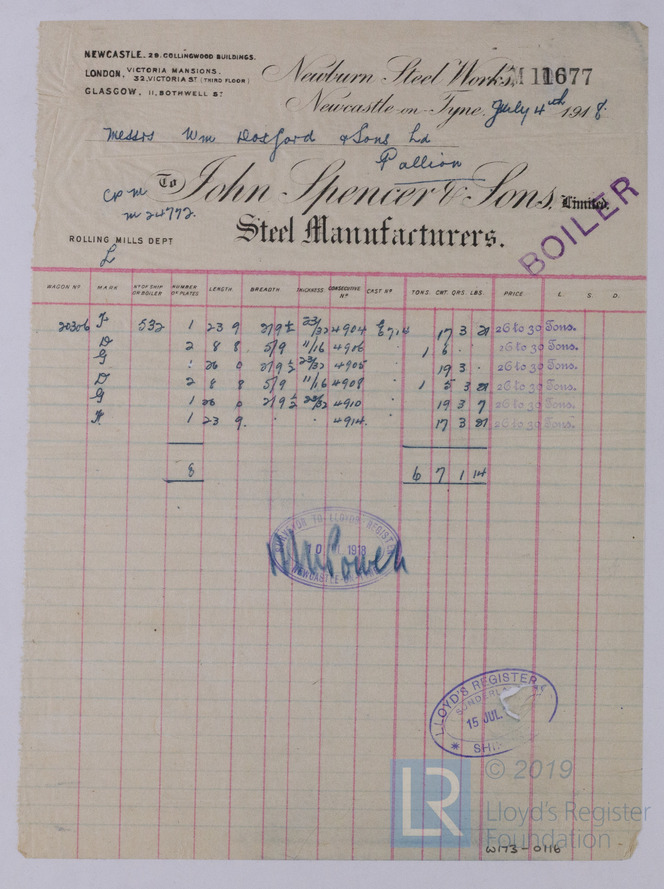 NEWCASTLE. 29. COLLINGWOOD BUILDINGS.
LONDON, VICTORIA MANSIONS.
32. VICTORIA ST (THIRD FLOOR)
GLASGOW, 11, BOTHWELL ST
Newburn Steel Works, M 11677
Newcastle-on-Tyne, July 4th 1918
Messrs Wm Doxford & Sons Ld
Pallion
CPM
M 24772.
To John Spencer & Sons, Limited.
Steel Manufacturers.
BOILER
ROLLING MILLS DEPT
L
WAGON No MARK No OF SHIP OR BOILER NUMBER OF PLATES LENGTH BREADTH THICKNESS CONSECUTIVE No CAST No TONS. CWT. QRS. LBS. PRICE L. S. D.
20306 F 532 1 23 9 2/9½ 23/32 4904 6714 17 3 21 26 to 30 Tons.
D 2 8 8 5/9 11/16 4906 1 6 26 to 30 Tons.
G 1 26 0 2/9½ 23/32 4905 19 3 26 to 30 Tons.
D 2 8 8 5/9 11/16 4908 1 5 3 21 26 to 30 Tons.
G 1 26 0 2/9½ 23/32 4910 19 3 7 26 to 30 Tons.
F. 1 23 9. 4914. 17 3 21 26 to 30 Tons.
8 6 7 1 14
SURVEYOR TO LLOYDS REGISTER
1918
NEWCASTLE-ON-TYNE
LLOYD'S REGISTER
15 JUL.
© 2019
LR
Lloyd's Register
Foundation
W173-0116